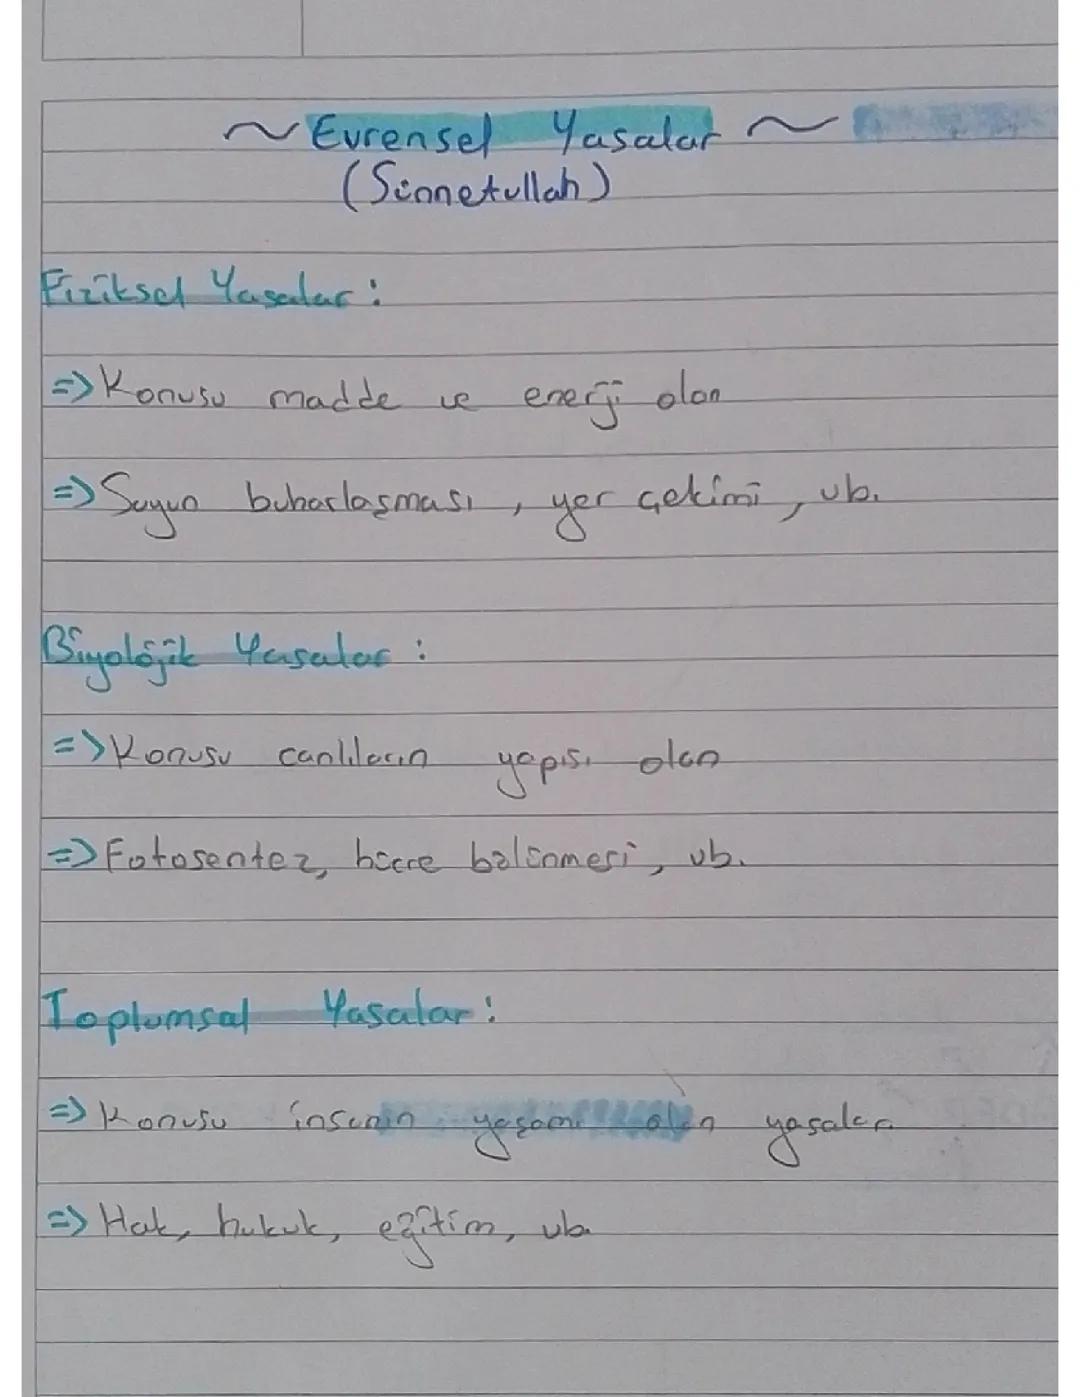 ~ Evrensel Yasalar ~
(Sünnetullah)
Fiziksel Yasalar :
=> Konusu madde ve enerji olan
=> Suyun buharlaşması, yer çekimi, vb.
Biyolojik Yasalar :
=> Konusu canlıların yapısı olan
=> Fotosentez, hücre bölünmesi, vb.
Toplumsal Yasalar :
=> Konusu insanın yaşamı olan yasalar
=> Hak, hukuk, eğitim, vb.